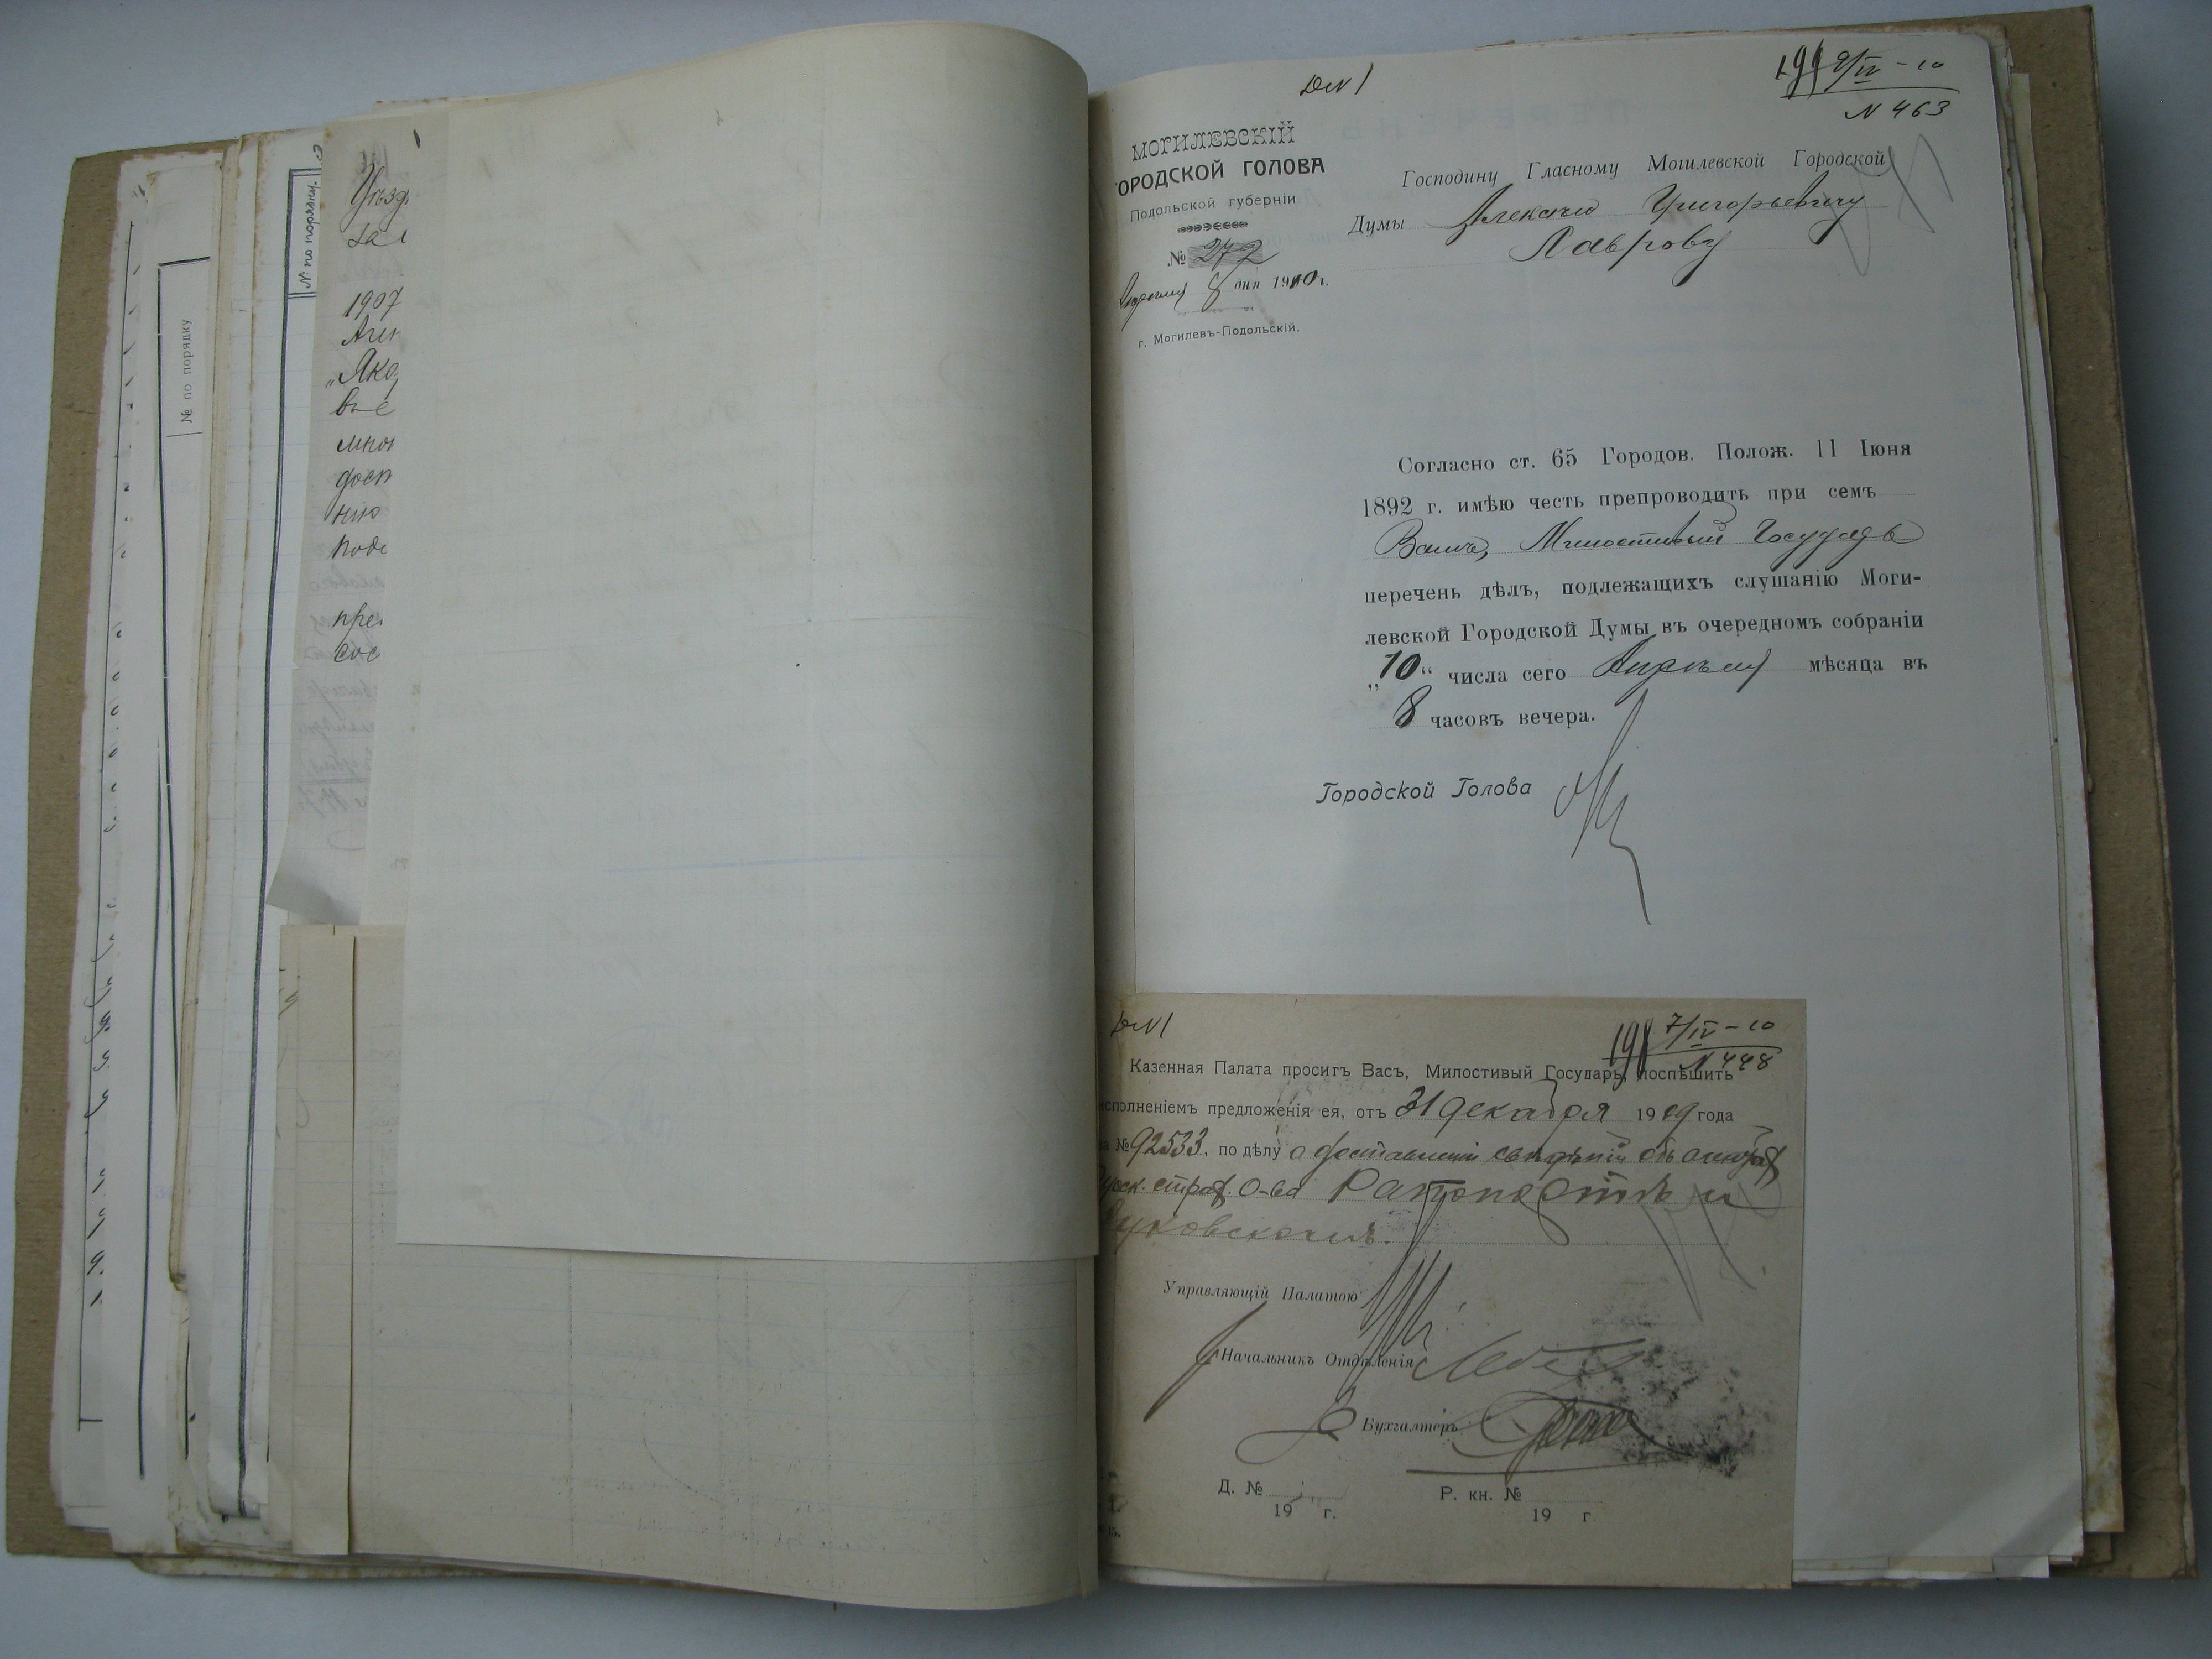 № по порядку
№ по порядку.
1907
ДМ1
9/IV – 10
N 463
МОГИЛЕВСКІЙ
ОРОДСКОЙ ГОЛОВА
Подольской губерніи
№ 272
Апреля 8 дня 1910 г.
г. Могилевъ-Подольскій.
Господину Гласному Могилевской Городской
Думы Алексѣю Григорьевичу
Лаврову
Согласно ст. 65 Городов. Полож. 11 Іюня
1892 г. имѣю честь препроводить при семъ
Вамъ, Милостивый Государь
перечень дѣлъ, подлежащихъ слушанію Моги-
левской Городской Думы въ очередномъ собраніи
„10“ числа сего Апрѣля мѣсяца въ
8 часовъ вечера.
Городской Голова
ДМ1
7/IV – 10
N 448
Казенная Палата проситъ Васъ, Милостивый Государь, поспѣшить
исполненіемъ предложенія ея, отъ 31 декабря 1909 года
за № 92533, по дѣлу о доставленіи свѣдѣній объ
страх. О-ва Рапопортъ и
уковскомъ.
Управляющій Палатою
Начальникъ Отдѣленія
Бухгалтеръ
Д. №
Р. кн. №
19 г.
19 г.